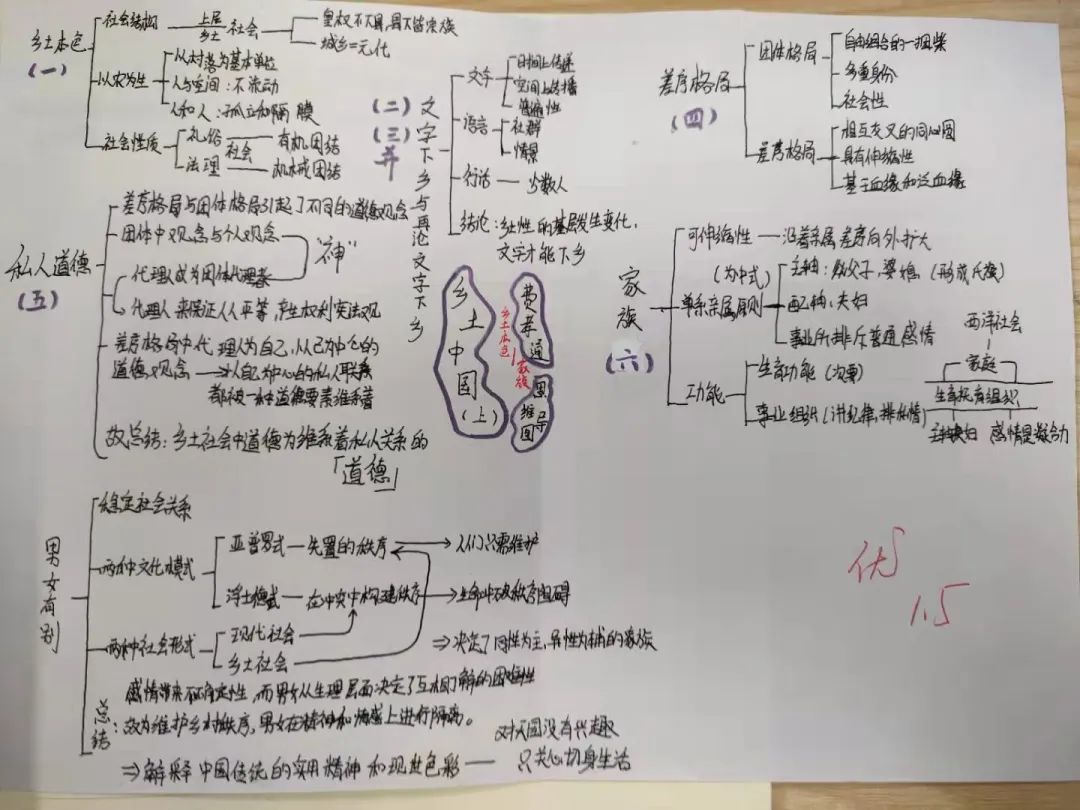 乡土本色
(一)
社会结构
上层
乡土
社会
皇权不下县,县下皆宗族
城乡=元化
以农为生
从村落为基本单位
人与空间:不流动
人和人:孤立和隔膜
社会性质
礼俗
法理
社会
有机团结
机械团结
(二)
(三)
并
文字下乡与再论文字下乡
文字
时间上传递
空间上传播
普遍性
语言
社群
情景
行话
少数人
结论:乡土性的基层发生变化,
文字才能下乡
差序格局
(四)
团体格局
自由组合的一捆柴
多重身份
社会性
差序格局
相互交叉的同心圆
具有伸缩性
基于血缘和泛血缘
私人道德
(五)
差序格局与团体格局引起了不同的道德观念
团体中观念与个人观念
"神"
代理人成为团体代理者
代理人来保证人人平等,产生权利宪法观
差序格局中代理为自己,从己为中心的
道德观念→以自己为中心的私人联系
都被一种道德要素维系着
故总结:乡土社会中道德为维系着私人关系的
「道德」
乡土中国(上)
费孝通
思维导图
乡土底色
家族
家族
(六)
可伸缩性
沿着亲属差序向外扩大
单系亲属原则
(为中式)
主轴:似父子,婆媳 (形成氏族)
配轴:夫妇
事业所排斥普通感情
功能
生育功能 (次要)
事业组织(讲纪律,排私情)
西洋社会
家庭
生育抚育组织
主轴夫妇
感情是凝合力
男女有别
稳定社会关系
两种文化模式
亚普罗式
先置的秩序
人们只需维护
浮士德式
在冲突中构建秩序
生命中不及秩序阻碍
两种社会形式
现代社会
乡土社会
⇒决定了同性为主,异性为辅的家族
总结:
感情带来不确定性,而男女从生理层面决定了互相了解的困难性
故为维护乡村秩序,男女在精神和情感上进行隔离。
⇒解释中国传统的实用精神和现世色彩
对天国没有兴趣
只关心切身生活
优
1.5